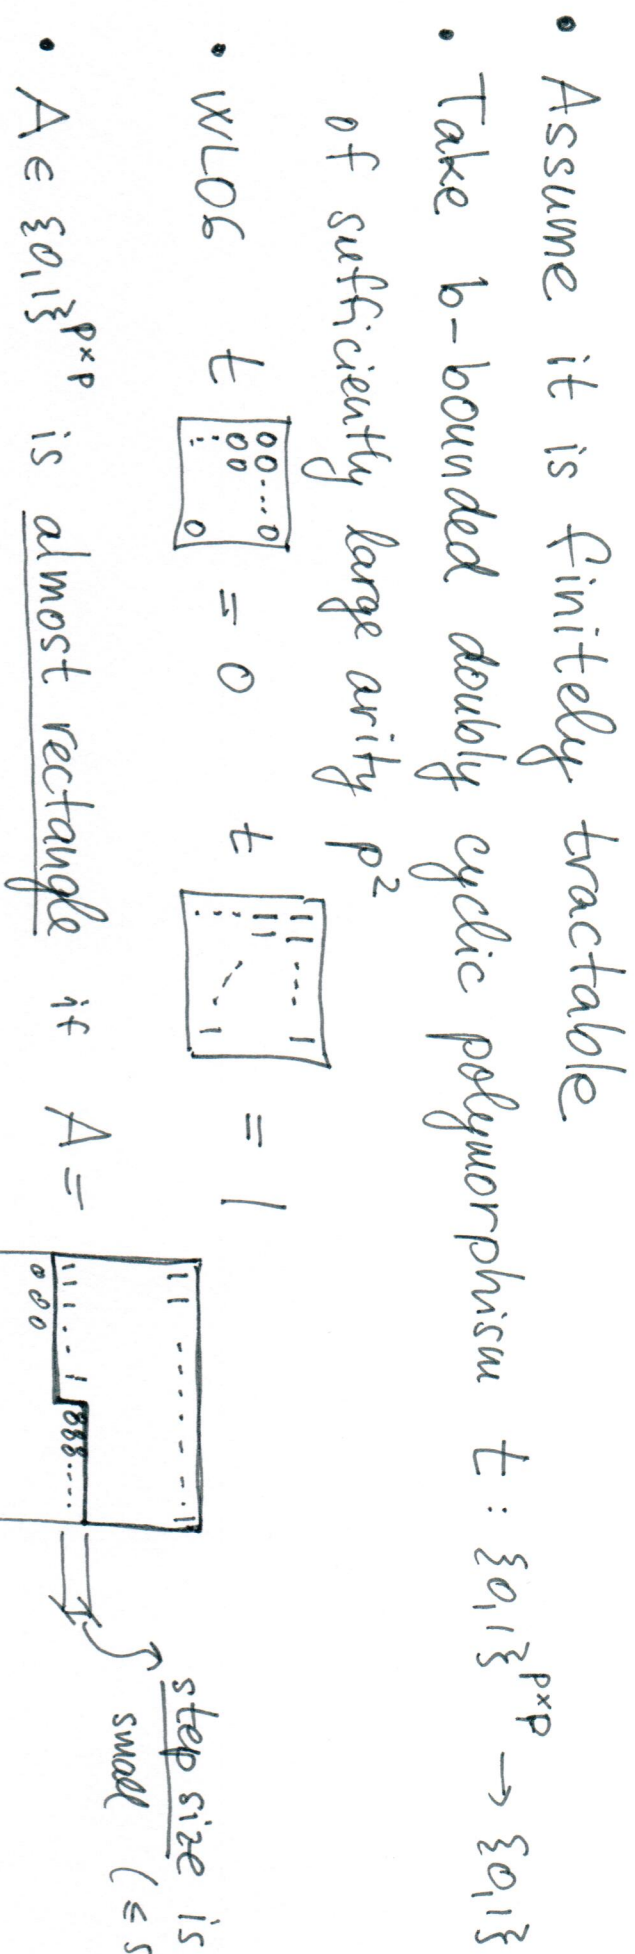 • Assume it is finitely tractable
• Take b-bounded doubly cyclic polymorphism t : {0,1}^{p×p} → {0,1}
of sufficiently large arity p²
• WLOG t [00...0 00 ⋮ 0] = 0 t [11---1 11 ⋮ 1] = 1
• A ∈ {0,1}^{p×p} is almost rectangle if A = [11------1 111..1 0000.... 000]
step size is
small (≤